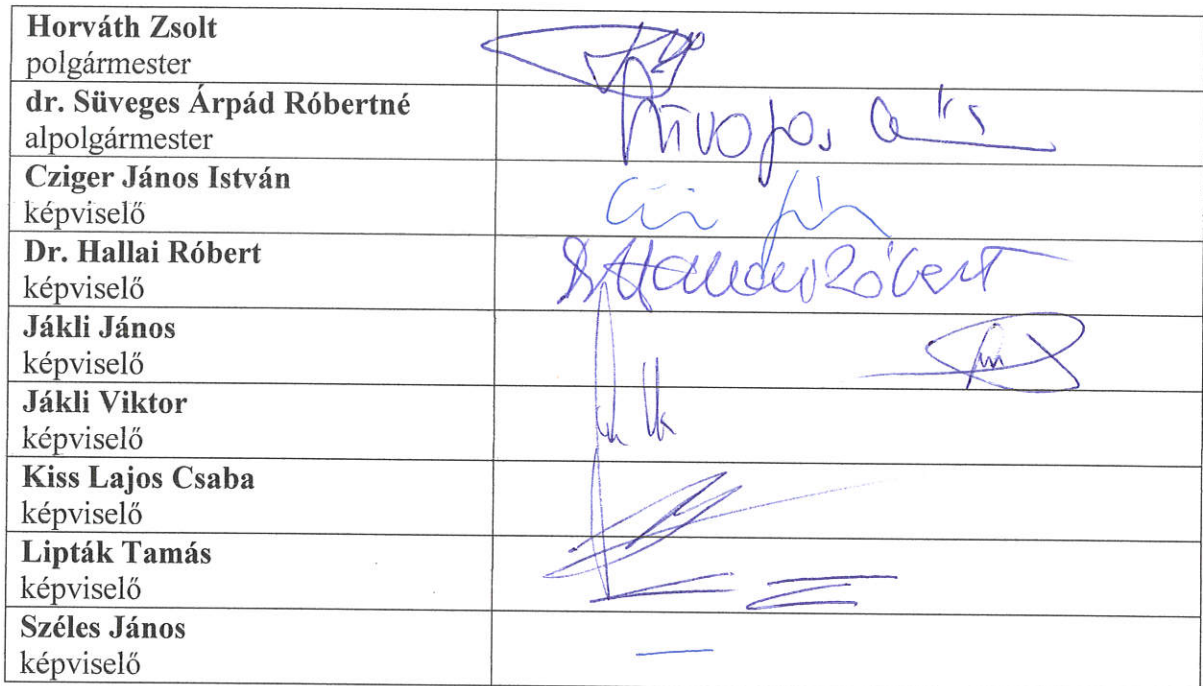 Horváth Zsolt
polgármester
dr. Süveges Árpád Róbertné
alpolgármester
Cziger János István
képviselő
Dr. Hallai Róbert
képviselő
Jákli János
képviselő
Jákli Viktor
képviselő
Kiss Lajos Csaba
képviselő
Lipták Tamás
képviselő
Széles János
képviselő
—